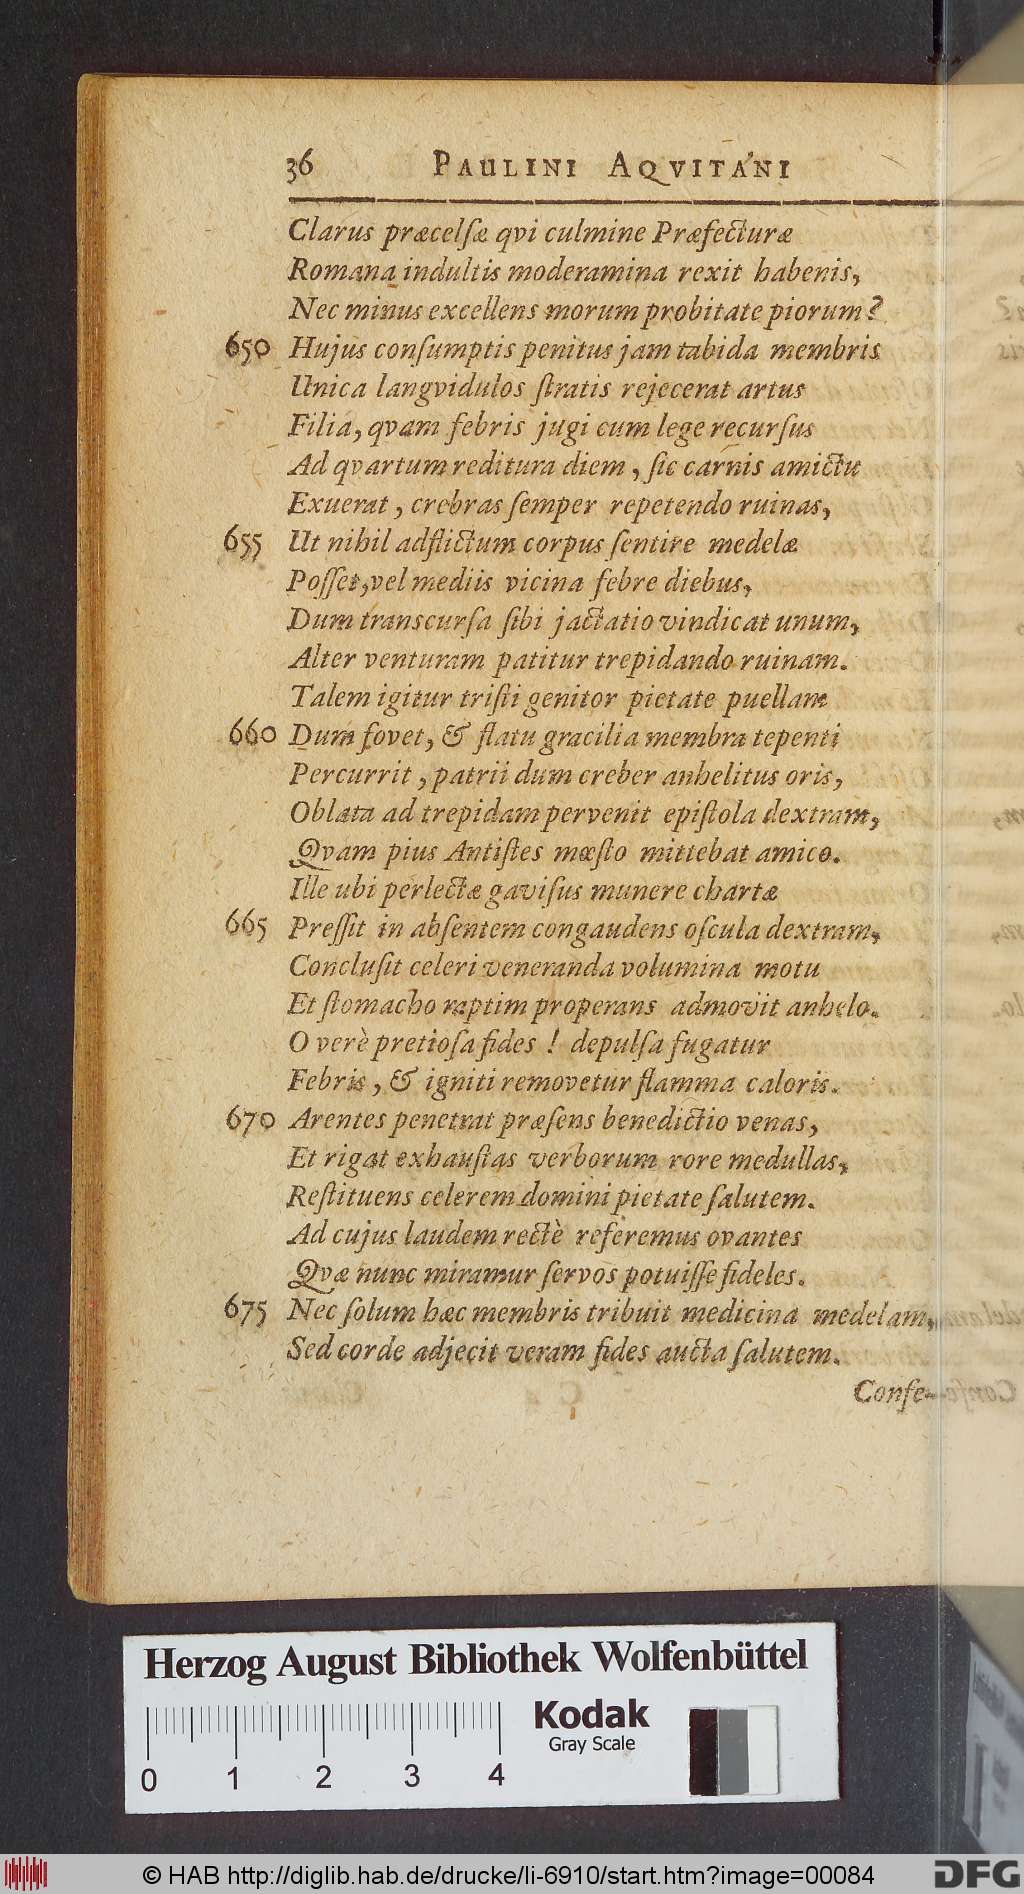 36 PAULINI AQVITANI
Clarus præcelſæ qvi culmine Præfecturæ
Romana indultis moderamina rexit habenis,
Nec minus excellens morum probitate piorum?
650 Hujus conſumptis penitus jam tabida membris
Unica langvidulos ſtratis rejecerat artus
Filia, qvam febris jugi cum lege recurſus
Ad qvartum reditura diem, ſic carnis amictu
Exuerat, crebras ſemper repetendo ruinas,
655 Ut nihil adflictum corpus ſentire medelæ
Poſſet, vel mediis vicina febre diebus,
Dum transcurſa ſibi jactatio vindicat unum,
Alter venturam patitur trepidando ruinam.
Talem igitur triſti genitor pietate puellam
660 Dum fovet, & flatu gracilia membra tepenti
Percurrit, patrii dum creber anhelitus oris,
Oblata ad trepidam pervenit epiſtola dextram,
Qvam pius Antiſtes mœſto mittebat amico.
Ille ubi perlectæ gaviſus munere chartæ
665 Preſſit in abſentem congaudens oſcula dextram,
Concluſit celeri veneranda volumina motu
Et ſtomacho raptim properans admovit anhelo.
O verè pretioſa fides! depulſa fugatur
Febris, & igniti removetur flamma caloris.
670 Arentes penetrat præſens benedictio venas,
Et rigat exhauſtas verborum rore medullas,
Reſtituens celerem domini pietate ſalutem.
Ad cujus laudem rectè referemus ovantes
Qvæ nunc miramur ſervos potuiſſe fideles.
675 Nec ſolum hæc membris tribuit medicina medelam,
Sed corde adjecit veram fides aucta ſalutem.
Confe-
Herzog August Bibliothek Wolfenbüttel
Kodak
Gray Scale
0 1 2 3 4
© HAB http://diglib.hab.de/drucke/li-6910/start.htm?image=00084
DFG